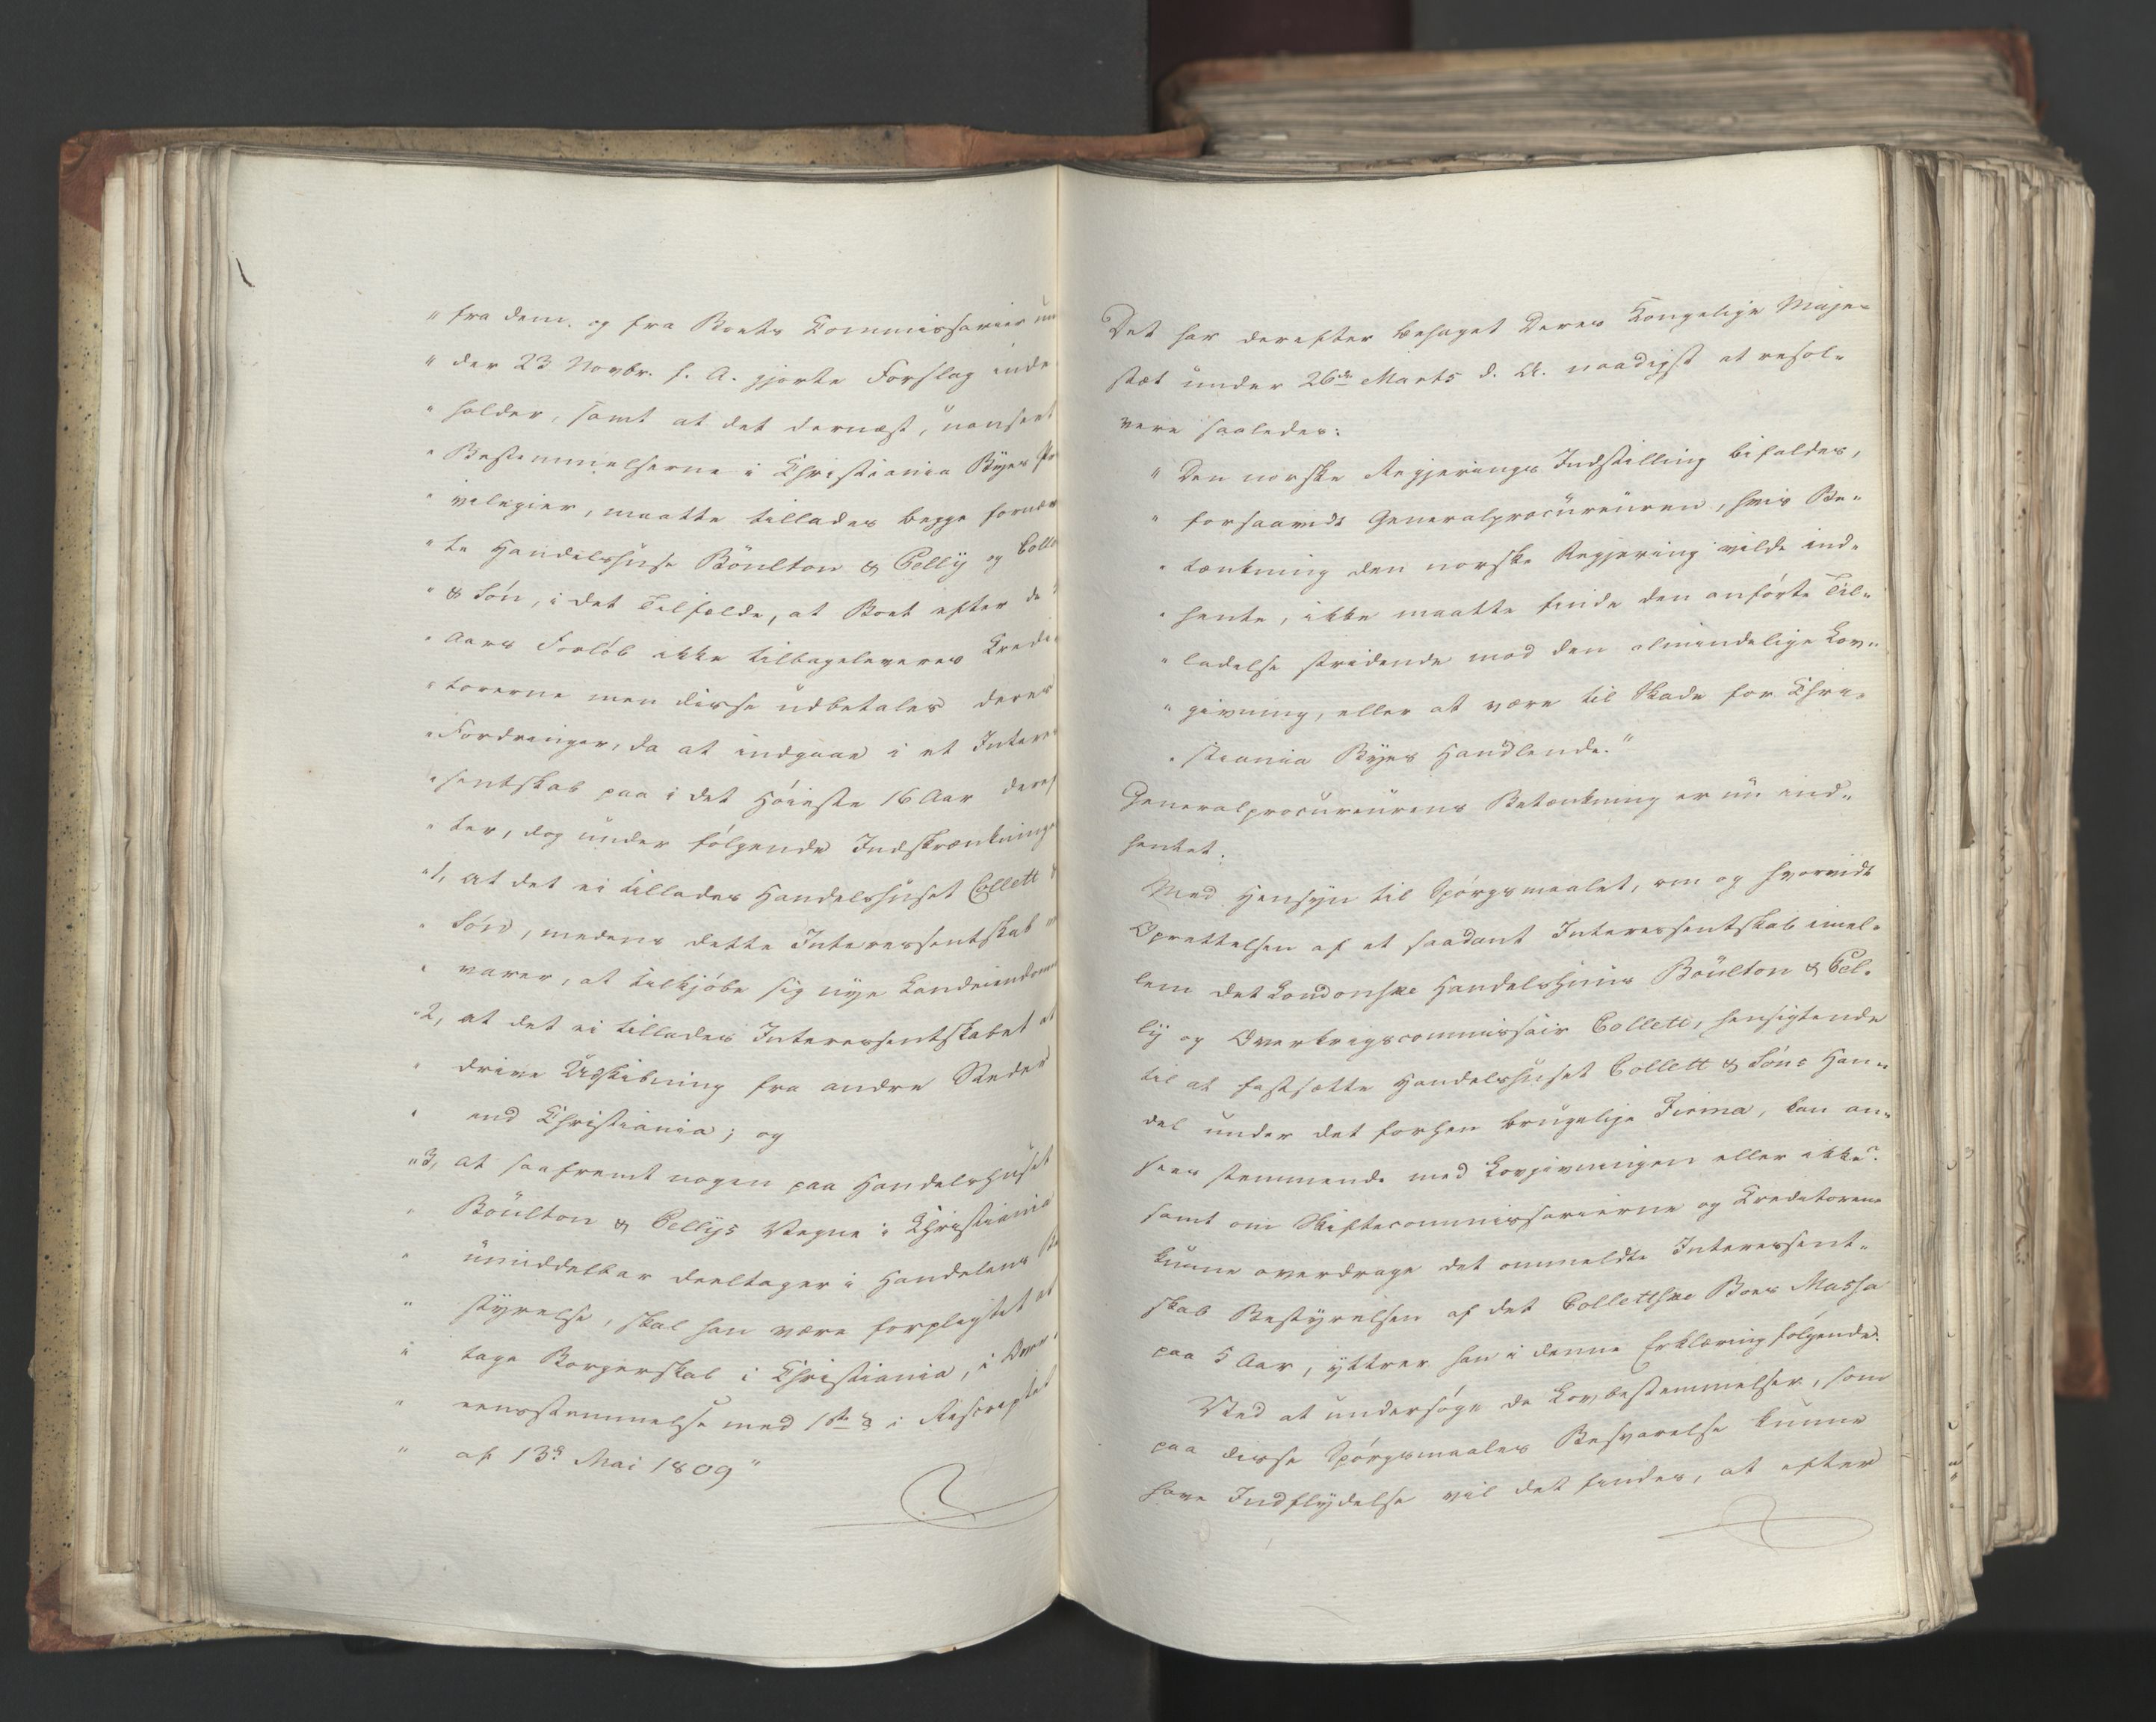 " fra dem, og fra Boets Commissarier un
" der 23 Novbr. f. A. gjorte Forslag inde
" holder, samt at det dernæst, uanseet
" Bestemmelserne i Christiania Byes Pr
" ivilegier, maatte tillades begge fornævn
" te Handelshuse Böulton & Pelly og Colle
" & Sön, i det Tilfælde, at Boet efter de 5
" Aars Forlöb ikke tilbageleveres Credi
" torerne men disse udbetales deres
" Fordringer, da at indgaae i et Interes
" sentskab paa i det Höieste 16 Aar deref
" ter, dog under fölgende Indskrænkninger
" 1, at det ei tillades Handelshuset Collett &
" Sön, medens dette Interessentskab
" varer, at tilkjöbe sig nye Landeiendomme
" 2, at det ei tillades Interessentskabet at
" drive Udskibning fra andre Steder
" end Christiania; og
" 3, at saafremt nogen paa Handelshuset
" Böulton & Pellys Vegne i Christiania
" umiddelbar deeltager i Handelens Be
" styrelse, skal han være forpligtet at
" tage Borgerskab i Christiania, i Over
" eensstemmelse med 1ste § i Rescriptet
" af 13de Mai 1809"
Det har derefter behaget Deres Kongelige Maje-
stæt under 26de Marts d. A. naadigst at resol-
vere saaledes:
" Den norske Regjerings Indstilling bifaldes,
" forsaavidt Generalprocureuren, hvis Be-
" tænkning den norske Regjering vilde ind-
" hente, ikke maatte finde den anförte Til-
" ladelse stridende mod den almindelige Lov-
" givning, eller at være til Skade for Chri-
" stiania Byes Handlende."
Generalprocureurens Betænkning er nu ind-
hentet.
Med Hensyn til Spörgsmaalet, om og hvorvidt
Oprettelsen af et saadant Interessentskab imel-
lem det Londonske Handelshuus Böulton & Pel-
ly og Overkrigscommissair Collett, hensigtende
til at fastsætte Handelshuset Collett & Söns Han-
del under det forhen brugelige Firma, kan an-
sees stemmende med Lovgivningen eller ikke?
samt om Skiftecommissarierne og Creditorene
kunne overdrage det ommeldte Interessent-
skab Bestyrelsen af det Collettske Boes Massa
paa 5 Aar, yttrer han i denne Erklæring fölgende:
Ved at undersöge de Lovbestemmelser, som
paa disse Spörgsmaales Besvarelse kunne
have Indflydelse vil det findes, at efter